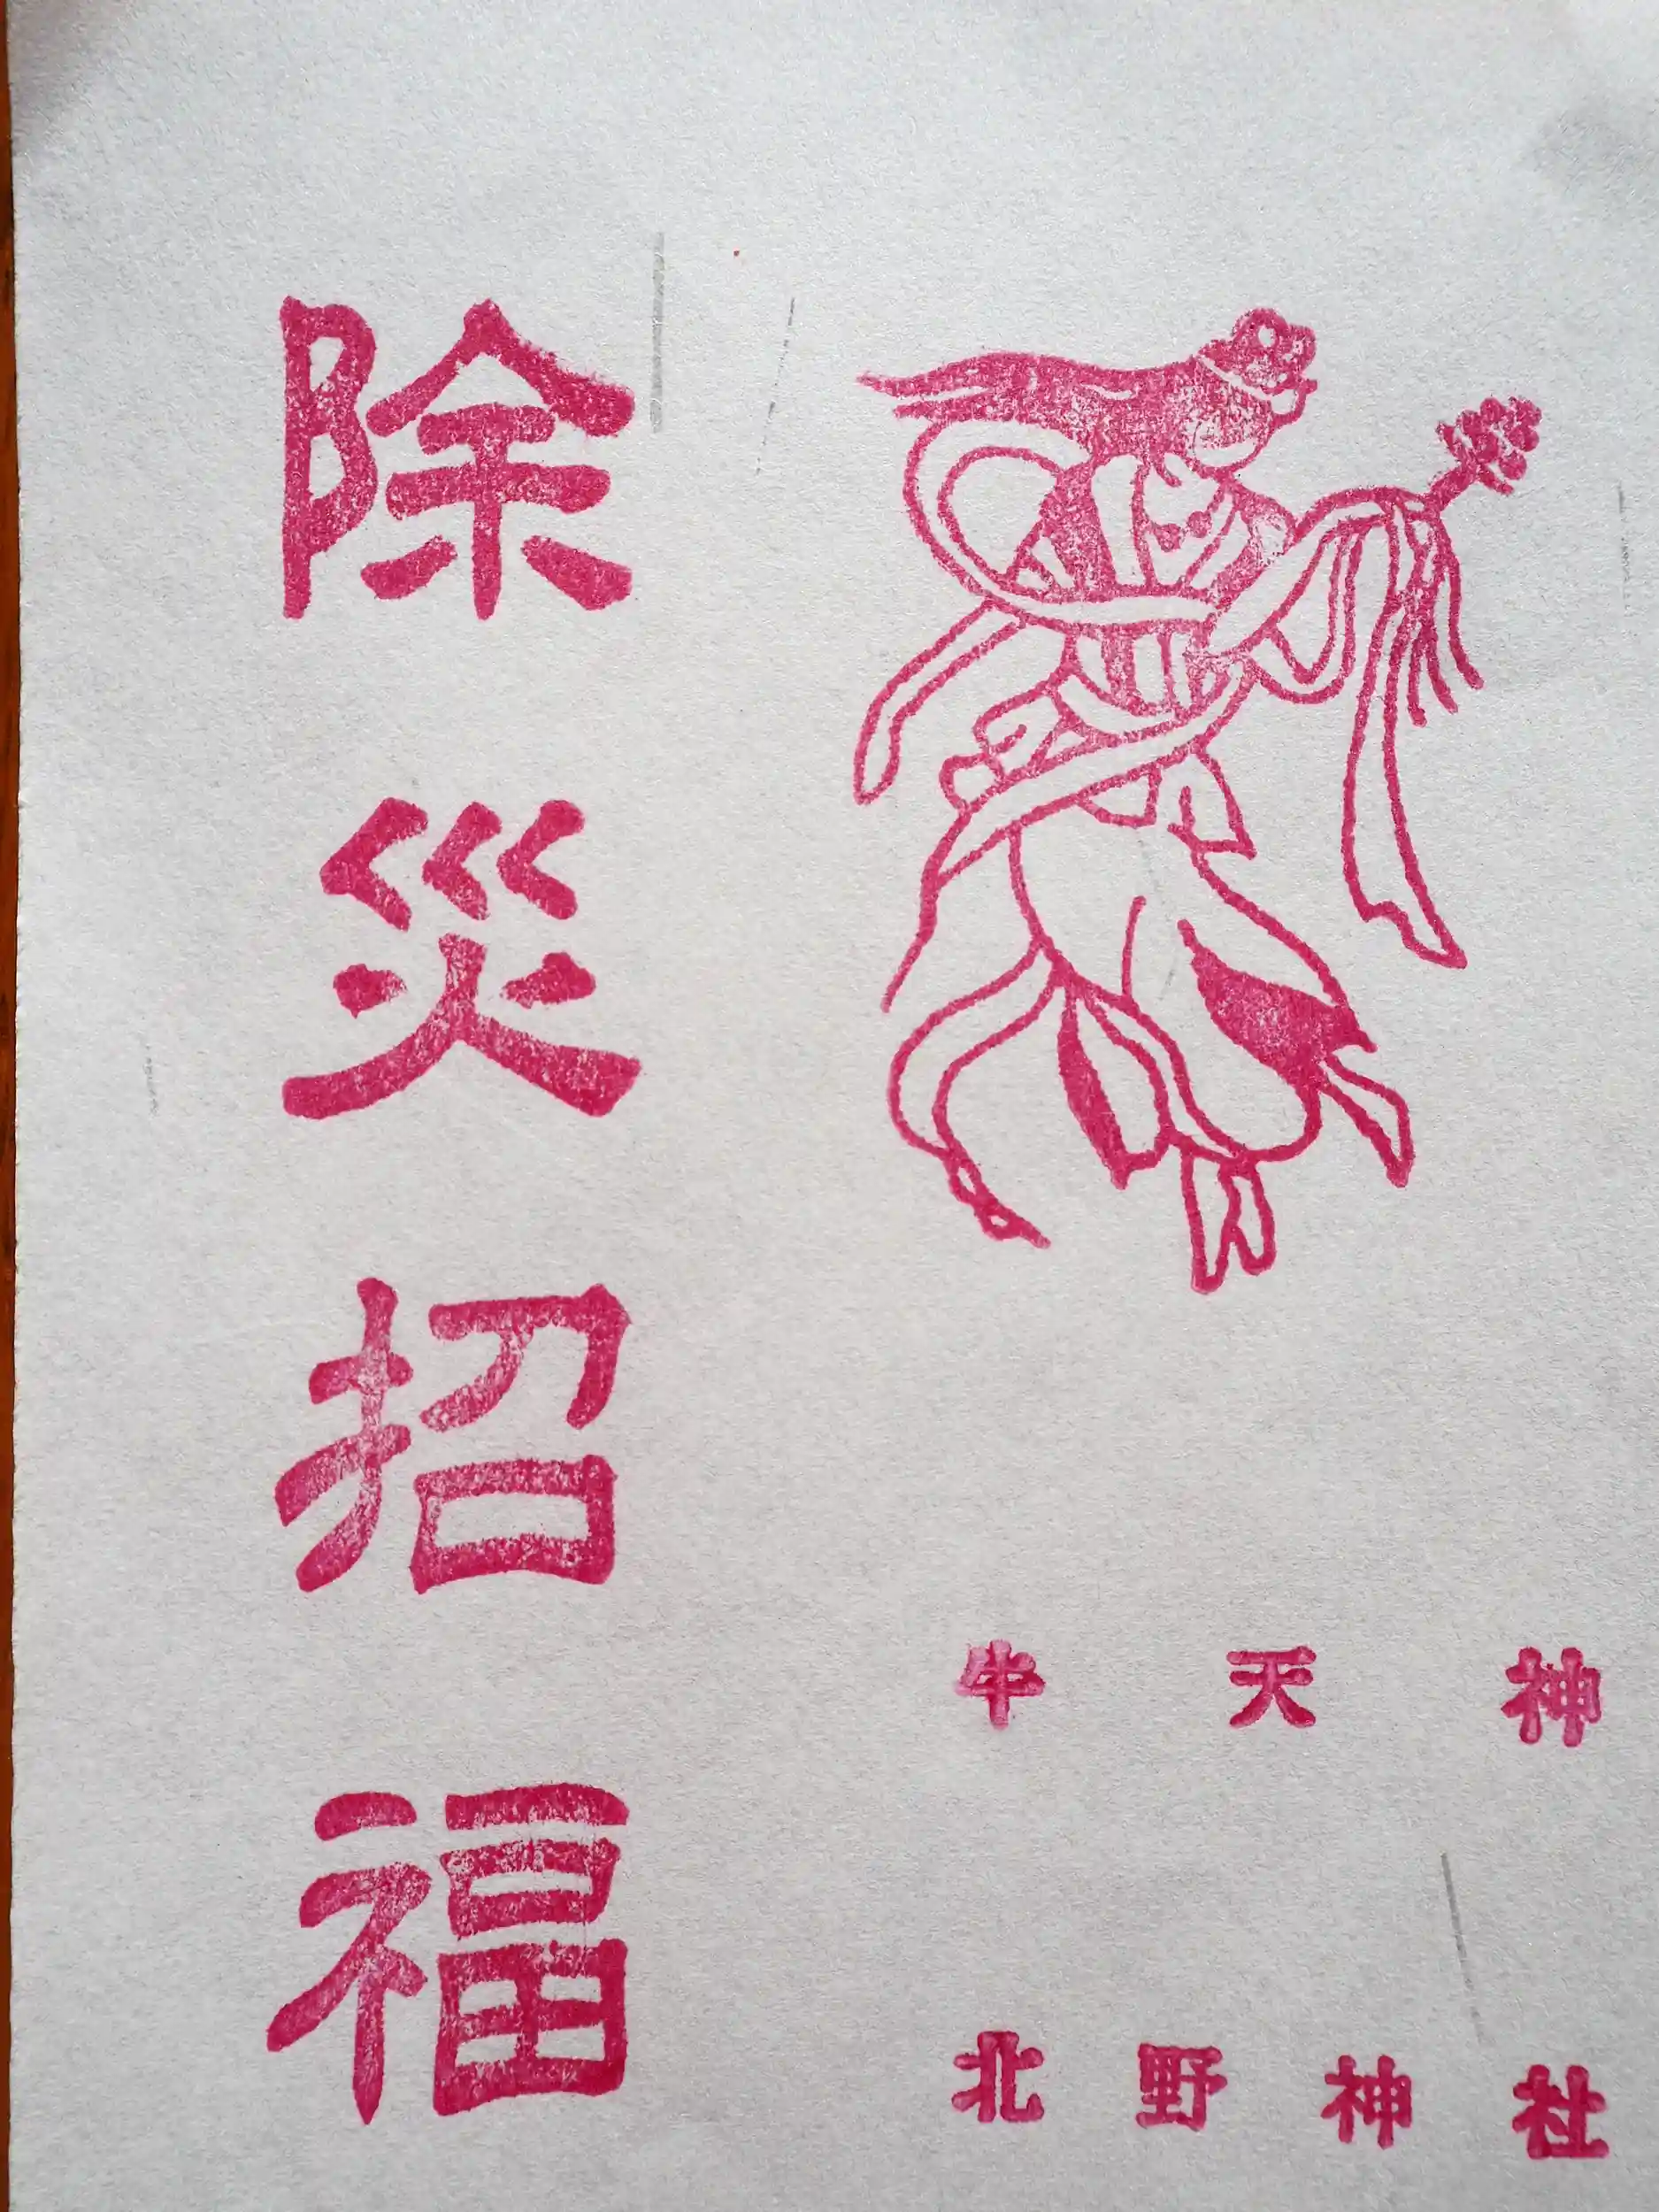 除災招福
牛天神
北野神社